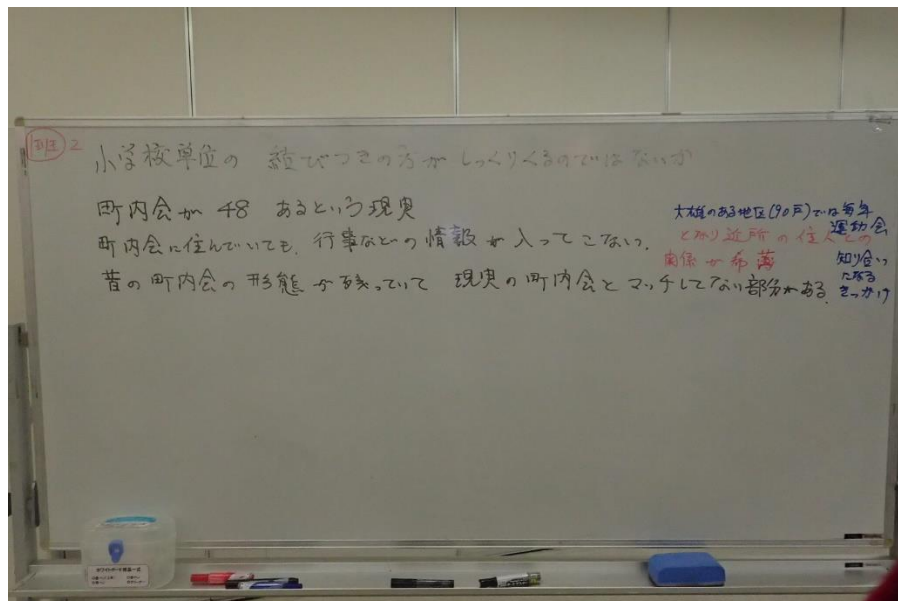 班 2
小学校単位の 結びつきの方が しっくりくるのではないか
町内会が 48 あるという現実
町内会に住んでいても、行事などの情報が入ってこない。
昔の町内会の形態が残っていて 現実の町内会とマッチしてない部分がある。
大雄のある地区(90戸)では毎年
運動会
となり近所の住人との
関係が希薄
知り合い
になる
きっかけ